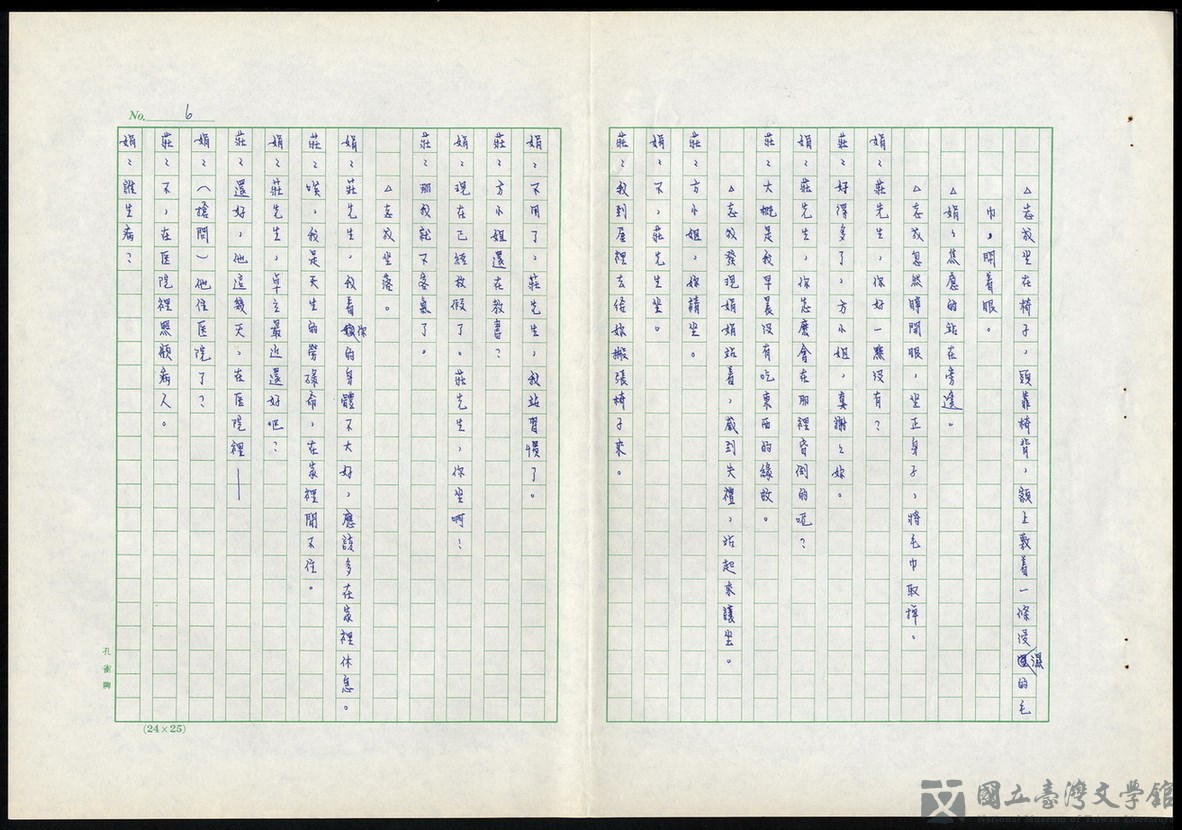 No. 6
△志放坐在椅子，頭靠椅背，額上敷着一條浸濕的毛
巾，閉着眼。
△娟娟焦應的站在旁邊。
△志放忽然睜開眼，坐正身子，將毛巾取掉。
娟：莊先生，你好一點沒有？
莊：好得多了，方小姐，真謝謝妳。
娟：莊先生，你怎麼會在那裡昏倒的呢？
莊：大概是我早晨沒有吃東西的緣故。
△志放發現娟娟站着，感到失禮，站起來讓坐。
莊：方小姐，妳請坐。
娟：不，莊先生坐。
莊：我到屋裡去給妳搬張椅子來。
娟：不用了，莊先生，我站習慣了。
莊：方小姐還在教書？
娟：現在已經放假了。莊先生，你坐啊！
莊：那我就不客氣了。
△志放坐落。
娟：莊先生，我看你的身體不大好，應該多在家裡休息。
莊：唉，我是天生的勞碌命，在家裡閒不住。
娟：莊先生，卓立最近還好吧？
莊：還好，他這幾天，在医院裡——
娟：（搶問）他住医院了？
莊：不，在医院裡照顧病人。
娟：誰生病？
孔雀牌
(24×25)
國立臺灣文學館
National Museum of Taiwan Literature